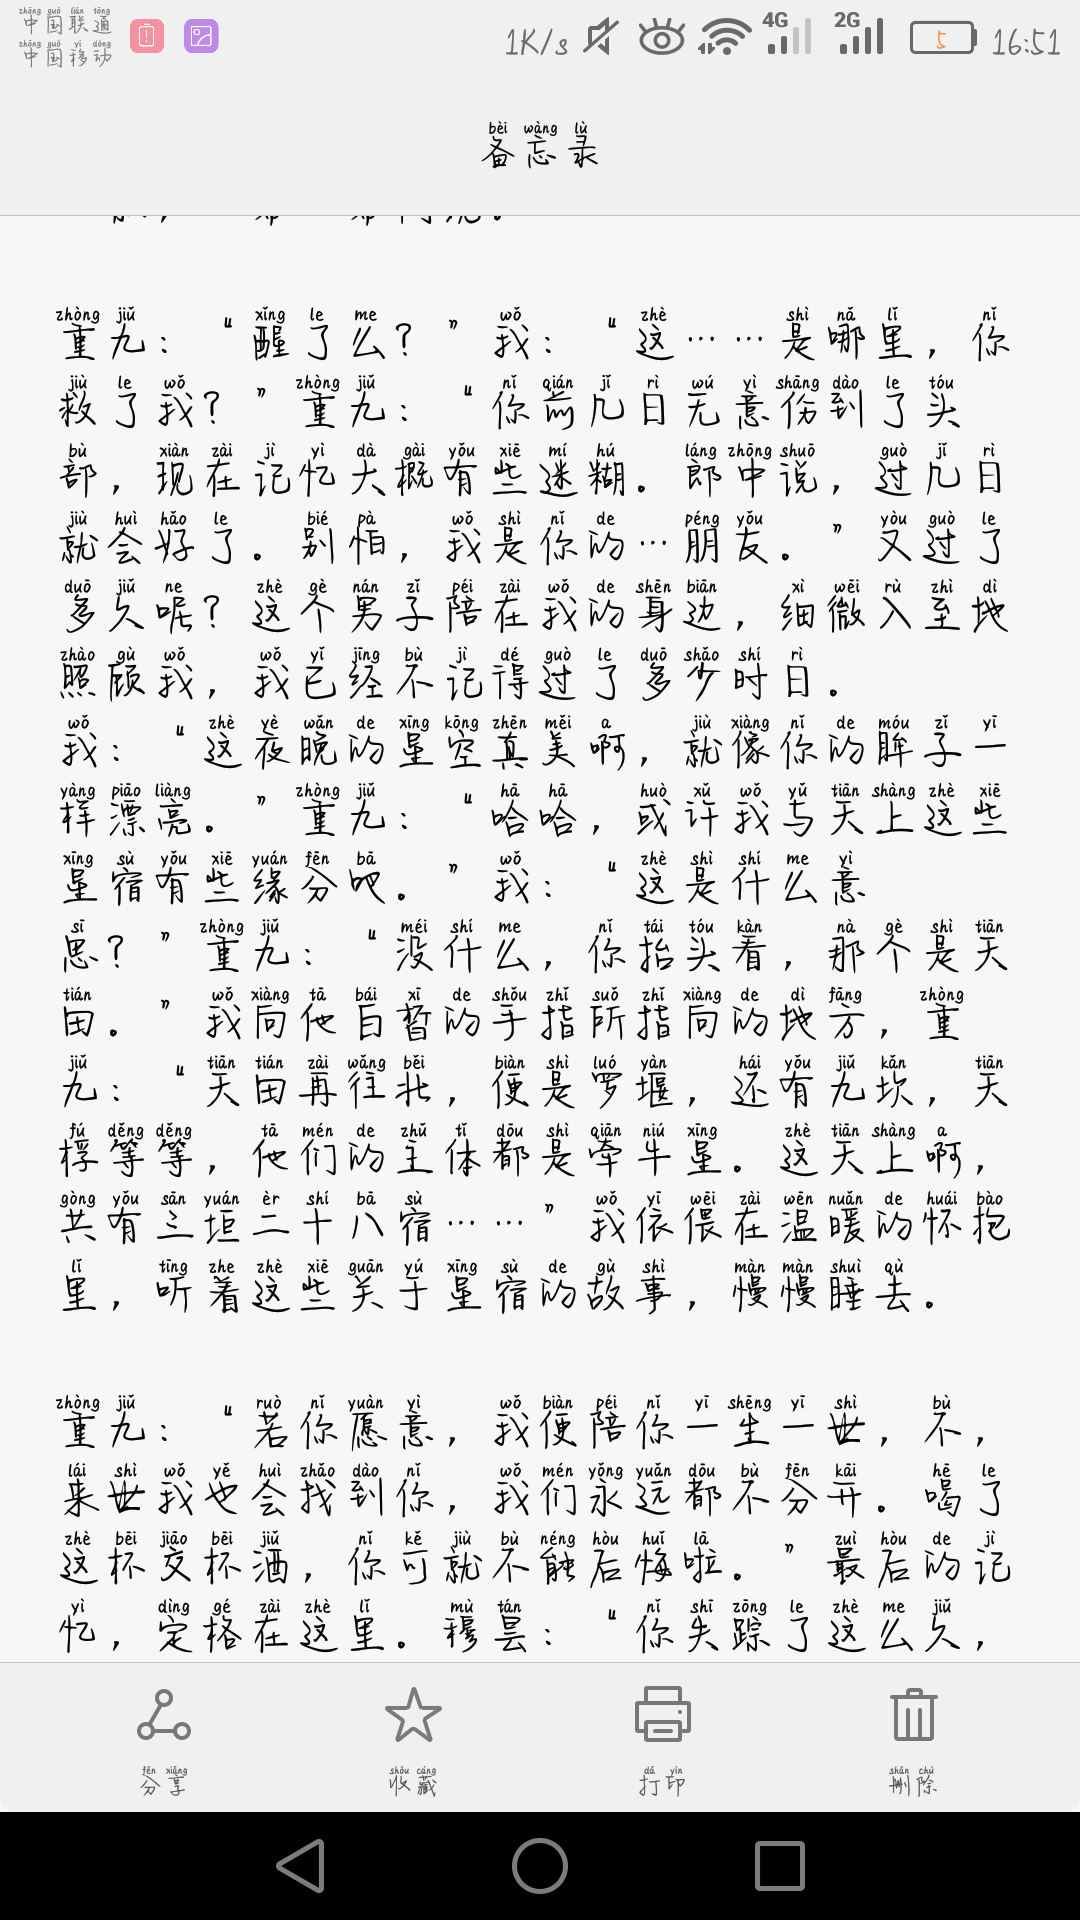 中国联通
中国移动
1K/s 4G 2G 5 16:51
备忘录
重九：“醒了么？”我：“这……是哪里，你
救了我？”重九：“你前几日无意伤到了头
部，现在记忆大概有些迷糊。郎中说，过几日
就会好了。别怕，我是你的…朋友。”又过了
多久呢？这个男子陪在我的身边，细微入至地
照顾我，我已经不记得过了多少时日。
我：“这夜晚的星空真美啊，就像你的眸子一
样漂亮。”重九：“哈哈，或许我与天上这些
星宿有些缘分吧。”我：“这是什么意
思？”重九：“没什么，你抬头看，那个是天
田。”我向他白皙的手指所指向的地方，重
九：“天田再往北，便是罗堰，还有九坎，天
桴等等，他们的主体都是牵牛星。这天上啊，
共有三垣二十八宿……”我依偎在温暖的怀抱
里，听着这些关于星宿的故事，慢慢睡去。
重九：“若你愿意，我便陪你一生一世，不，
来世我也会找到你，我们永远都不分开。喝了
这杯交杯酒，你可就不能后悔啦。”最后的记
忆，定格在这里。穆昙：“你失踪了这么久，
分享 收藏 打印 删除